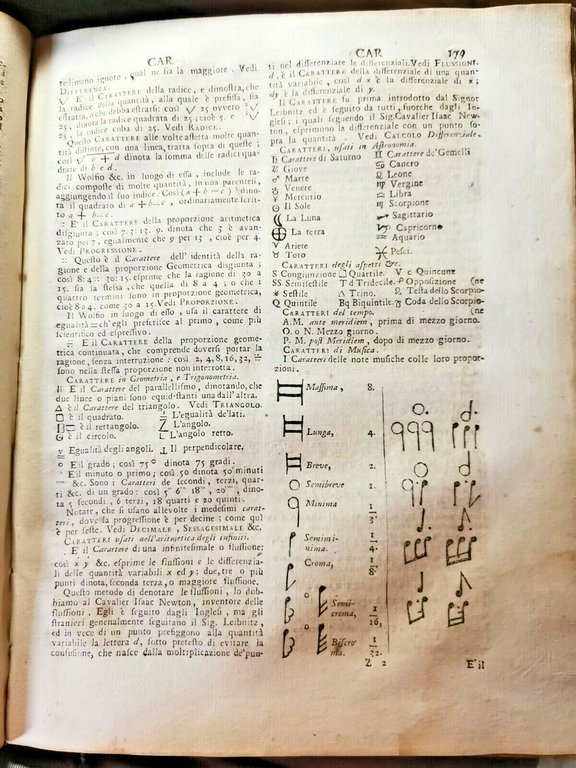 CAR
tedimeno ignoto, qual ne sia la maggiore. Vedi
DIFFERENZA.
√ E il CARATTERE della radice, e dimostra, che
la radice della quantità, alla quale è prefissa, sia
estratta, o che debba estrarsi: così √ 25 ovvero √
25, dinota la radice quadrata di 25; cioè 5. e √
25, la radice cuba di 25. Vedi RADICE.
Questo CARATTERE alle volte assetta molte quan-
tità distinte, con una linea, tratta sopra di queste;
così √ b + d dinota la somma delle radici qua-
drate di b e d.
Il Wolfio &c. in luogo di essa, include le ra-
dici composte di molte quantità, in una parentesi,
aggiungendo il suo indice: Così (a + b — c)² dino-
ta il quadrato di a + b — c, ordinariamente scrit-
to a + b — c.
∵ E il CARATTERE della proporzione aritmetica
disgiunta; così 7. 3: 13. 9. dinota che 3 è avan-
zato per 7, egualmente che 9 per 13, cioè per 4.
Vedi PROGRESSIONE.
:: Questo è il Carattere dell' identità della ra-
gione e della proporzione Geometrica disgiunta;
così 8: 4 :: 30: 15. esprime che la ragione di 30 a
15. sia la stessa, che quella di 8 a 4, o che i
quattro termini sono in proporzione geometrica,
cioè 8 a 4, come 30 a 15. Vedi PROPORZIONE.
Il Wolfio in luogo di esso, usa il carattere di
egualità = ch'egli preferisce al primo, come più
scientifico ed espressivo.
∺ E il CARATTERE della proporzione geome-
trica continuata, che comprende doversi portar la
ragione, senza interruzione: così 2, 4, 8, 16, 32, ∺
sono nella stessa proporzione non interrotta.
CARATTERE in Geometria, e Trigonometria.
II E il Carattere del parallelismo, dinotando, che
due linee o piani sono equidistanti una dall' altra.
△ è il Carattere del triangolo. Vedi TRIANGOLO.
□ è il quadrato. ⊥ L'egualità de'lati.
▭ è il rettangolo. ∠ L'angolo.
⊙ è il circolo. L L'angolo retto.
v Egualità degli angoli. ⊥ Il perpendicolare.
° E il grado; così 75° dinota 75 gradi.
′ E il minuto o primo; così 50′ dinota 50 minuti
″ ‴ ⁗ &c. Sono i Caratteri de secondi, terzi, quar-
ti &c. di un grado: così 5″ 6‴ 18⁗, 20, dino-
ta 5 secondi, 6 terzi, 18 quarti e 20 quinti.
Notate, che si usano allevolte i medesimi carat-
teri, dove la progressione è per decine; come quì
è per seste. Vedi DECIMALE, SESSAGESIMALE &c.
CARATTERI usati nell'aritmetica degli infiniti.
˙ E il Carattere di una infinitesimale o flussione:
così ẋ ẏ &c. esprime le flussioni e le differenzia-
li delle quantità variabili x ed y: due, tre o più
punti dinota, seconda, terza, o maggiore flussione.
Questo metodo di denotare le flussioni, lo dob-
biamo al Cavalier Isaac Newton, inventore delle
flussioni. Egli è seguito dagli Inglesi, ma gli
stranieri generalmente seguitano il Sig. Leibnitz,
ed in vece di un punto prefiggono alla quantità
variabile la lettera d, sotto pretesto di evitare la
confusione, che nasce dalla moltiplicazione de'pun-
CAR 179
ti nel differenziare le differenziali. Vedi FLUSSIONI.
d, è il CARATTERE della differenziale di una quan-
tità variabile, così d x è la differenziale di x;
dy è la differenziale di y.
Il CARATTERE fu prima introdotto dal Signor
Leibnitz ed è seguito da tutti, fuorchè dagli In-
glesi; i quali seguendo il Sig. Cavalier Isaac New-
ton, esprimono la differenziale con un punto so-
pra la quantità. Vedi CALCOLO Differenziale.
CARATTERI, usati in Astronomia.
♄ Carattere di Saturno ♊ Carattere de'Gemelli
♃ Giove ♋ Cancro
♂ Marte ♌ Leone
♀ Venere ♍ Vergine
☿ Mercurio ♎ Libra
☉ Il Sole ♏ Scorpione
☾ La Luna ♐ Sagittario
⊕ La terra ♑ Capricorno
♈ Ariete ♒ Aquario
♉ Toro ♓ Pesci.
CARATTERI degli aspetti &c.
S Congiunzione □ Quartile. V c Quincunz
SS Semisestile Td Tridecile. ☍ Opposizione (ne
⚹ Sestile △ Trino. ☊ Testa dello Scorpio-
Q Quintile Bq Biquintile. ☋ Coda dello Scorpio-
CARATTERI del tempo. (ne
A. M. ante meridiem, prima di mezzo giorno.
O. o N. Mezzo giorno.
P. M. post Meridiem, dopo di mezzo giorno.
CARATTERI di Musica.
I Caratteri delle note musiche colle loro propor-
zioni.
Massima, 8.
Lunga, 4.
Breve, 2.
Semibreve 1.
Minima 1/3
Semimi-
nima. 1/4.
Croma, 1/8
Semi-
croma, 1/16,
Biscro-
ma. 1/32.
Z 2
E'il